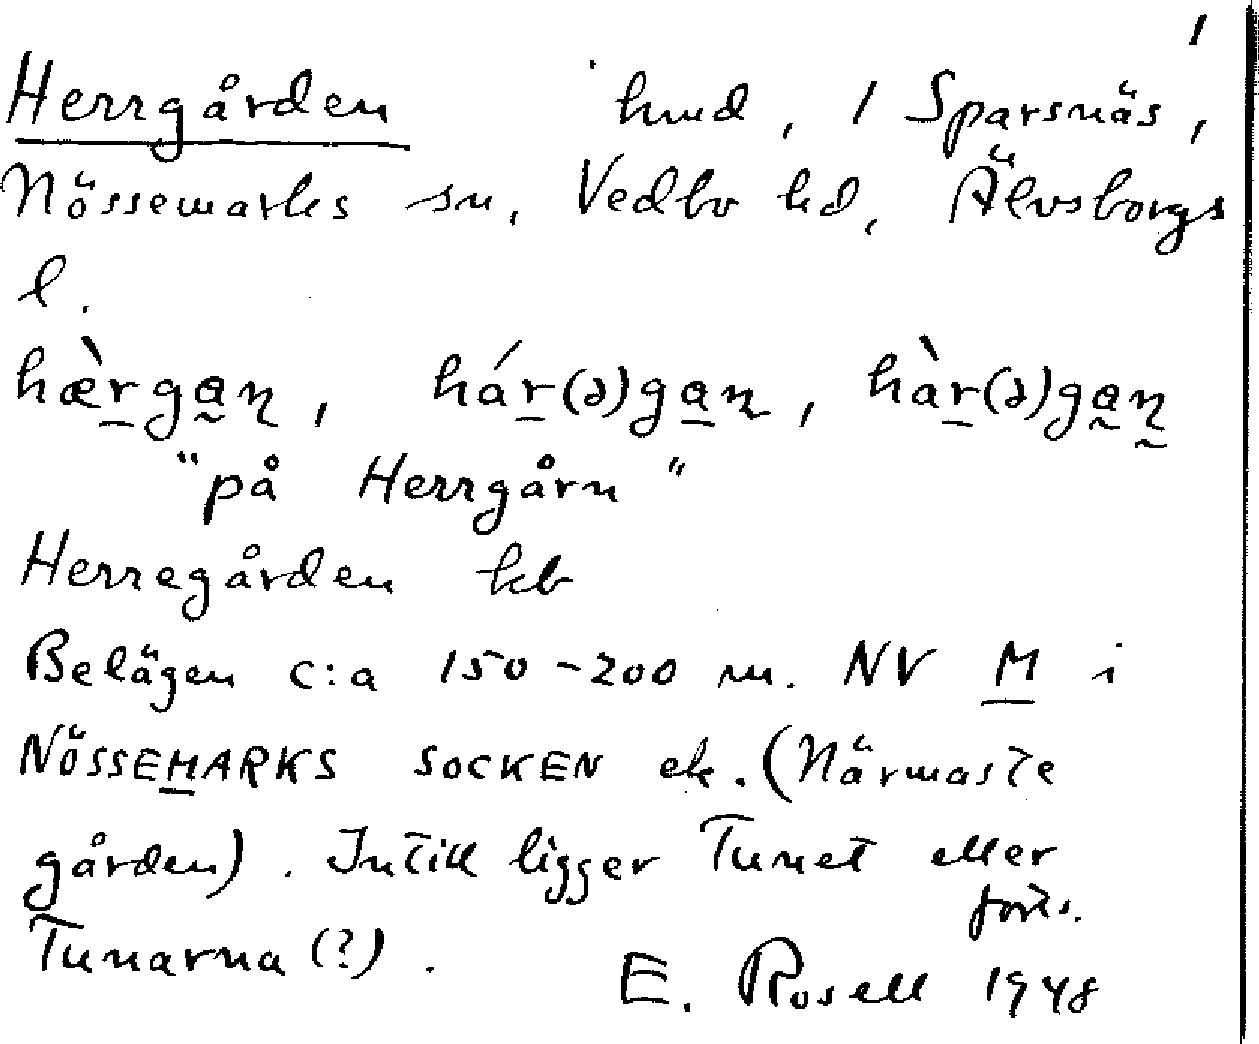 1
Herrgården hmd, 1 Sparsnäs,
Nössemarks sn, Vedbo hd, Älvsborgs
l.
hæ̀rgaɳ, hár(ə)gaɳ, hàr(ə)gaɳ
"på Herrgårn"
Herregården kb
Belägen c:a 150-200 m. NV M i
NÖSSEMARKS SOCKEN ek. (Närmaste
gården). Intill ligger Tunet eller
forts.
Tunarna (?).
E. Rosell 1948